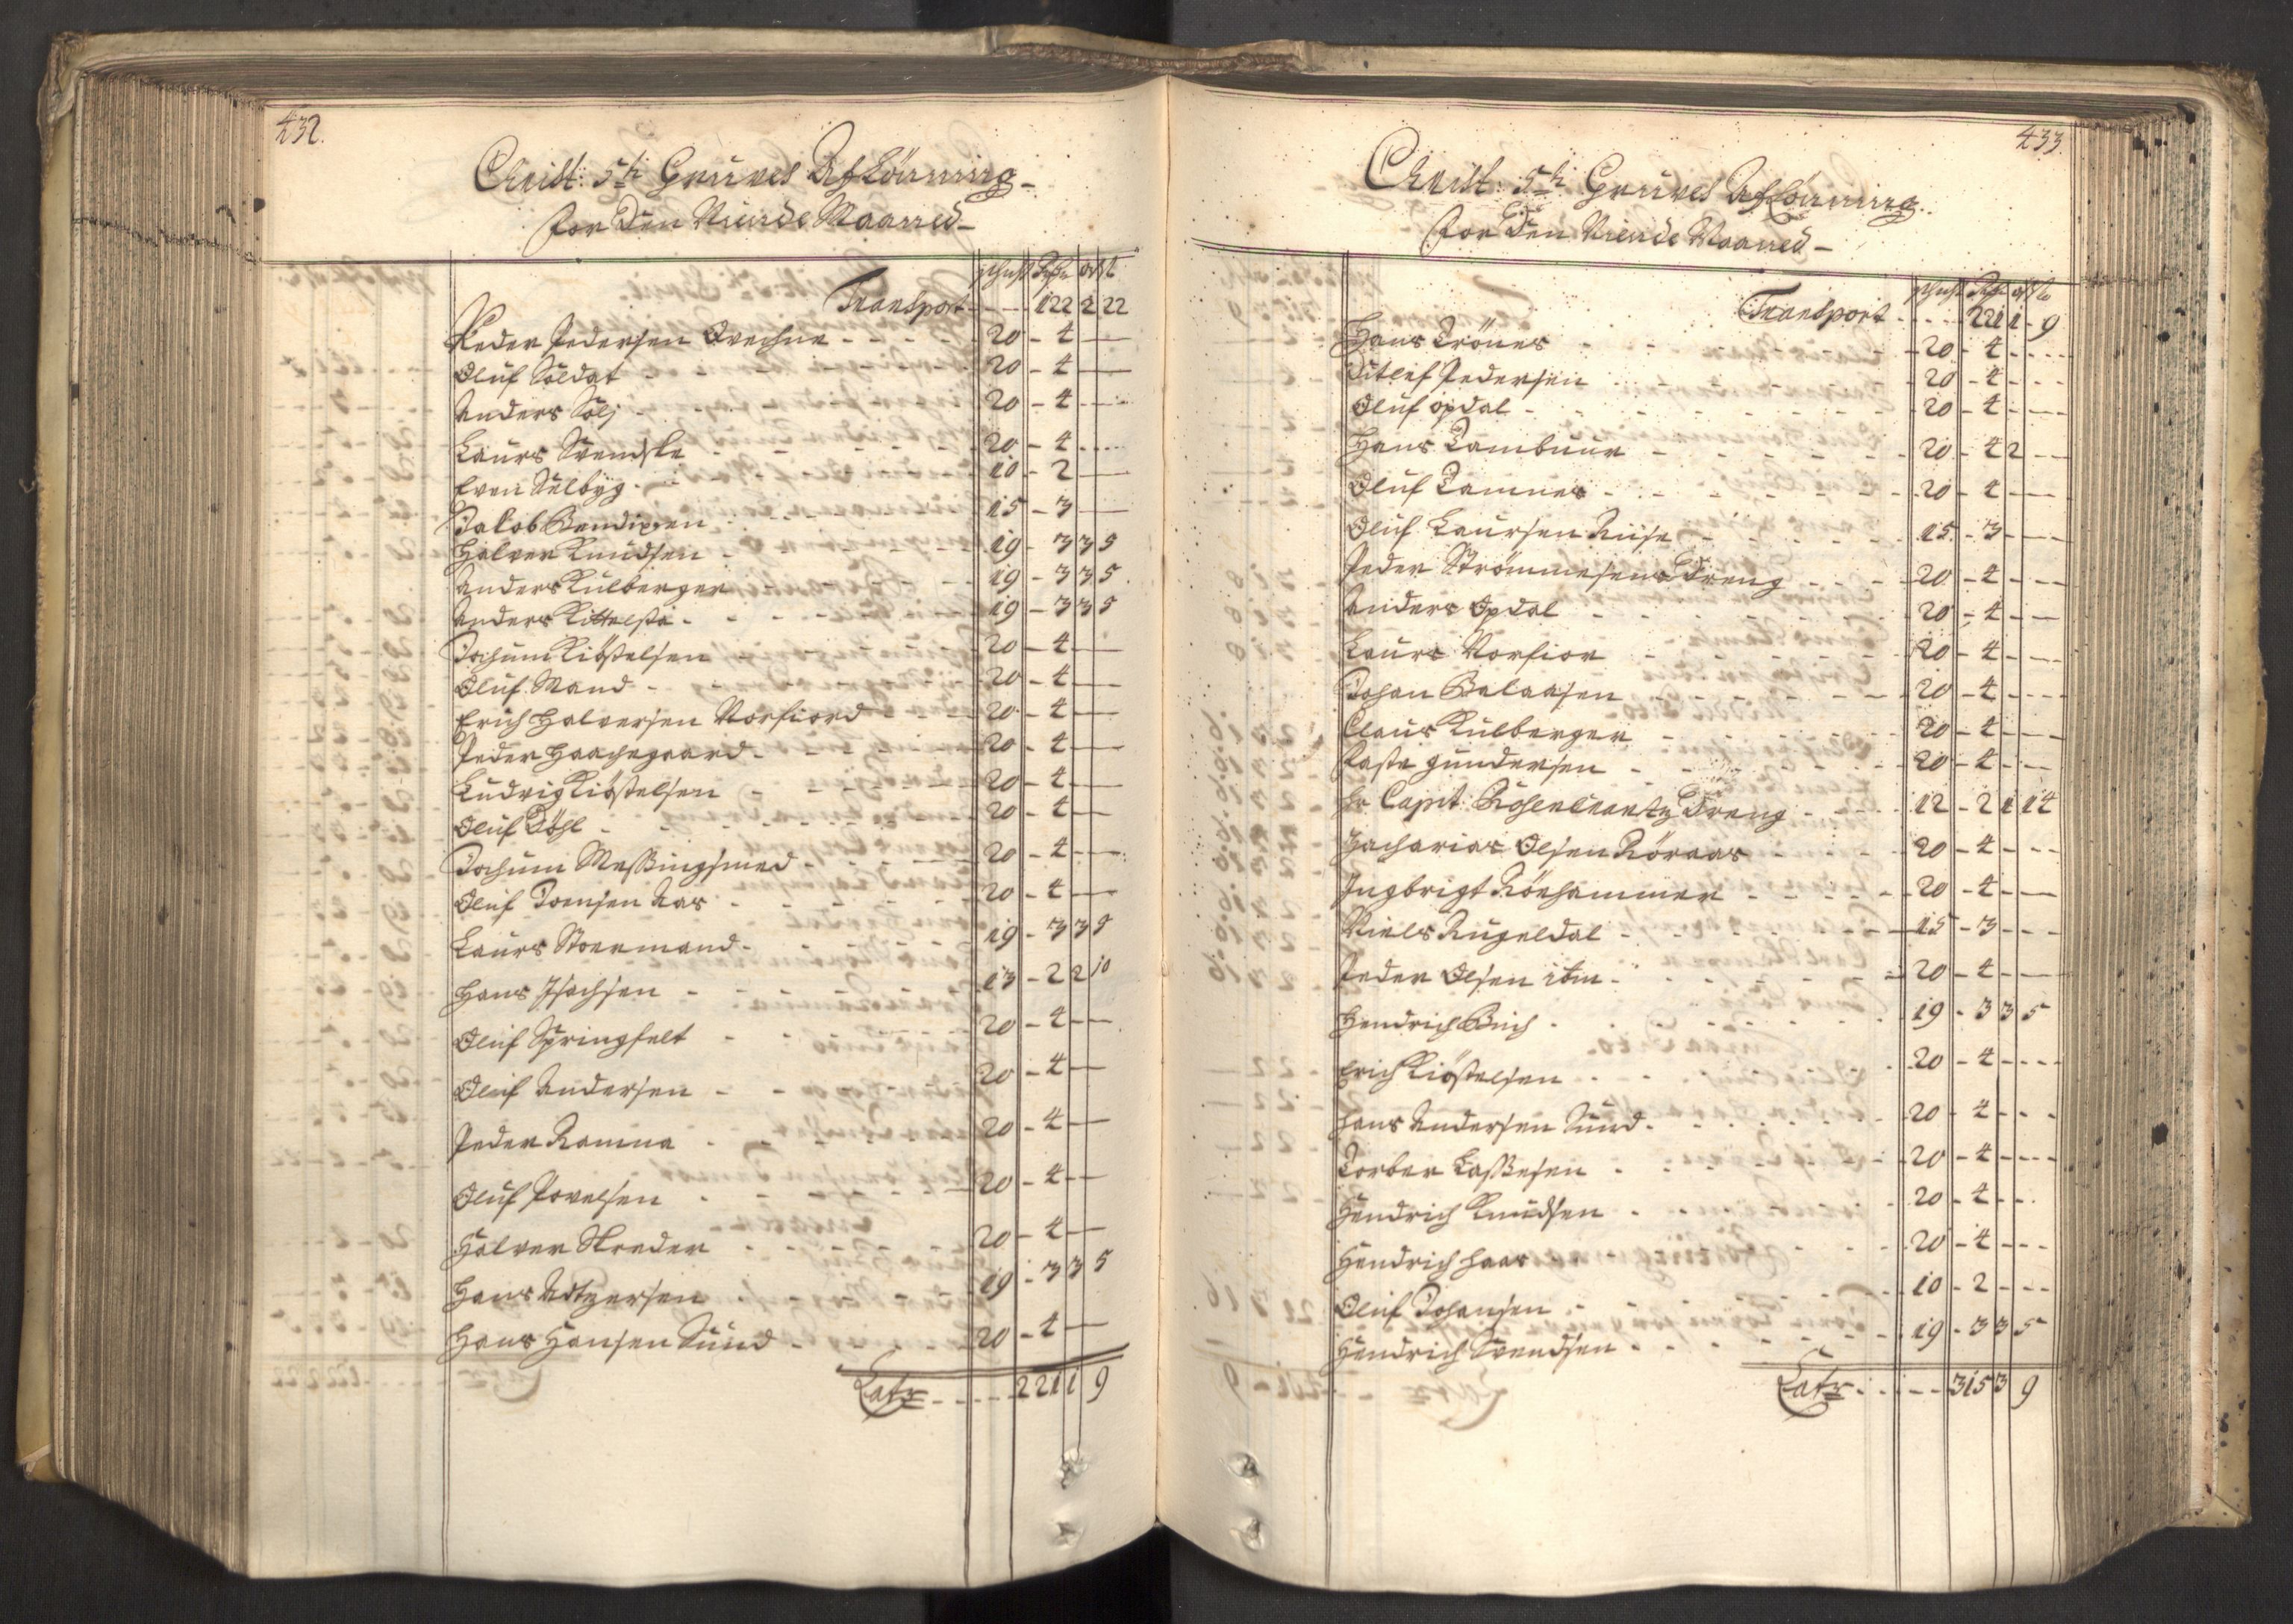 432.
Christ: 5ti Gruves Aflönning
for den Niende Maaned
schuft Rdr ort s
Transport - - 122 2 22
Peder Pedersen - - 20 - 4 -
Oluf Soldat - - 20 - 4 -
Anders - - 20 - 4 -
Laurs Svendske - - 20 - 4 -
Even Selbyg - - 10 - 2 -
Jacob Bendixen - - 15 - 3 -
Halvor Knudsen - - 19 - 3 3 5
Anders Kulberger - - 19 - 3 3 5
Anders - - 19 - 3 3 5
Jochum Kiöstelsen - - 20 - 4 -
Oluf Mand - - 20 - 4 -
Erich Halversen Norfiord - - 20 - 4 -
Peder Haachegaard - - 20 - 4 -
Ludvig Kiöstelsen - - 20 - 4 -
Oluf Döhl - - 20 - 4 -
Jochum Messingsmed - - 20 - 4 -
Oluf Joensen Aas - - 20 - 4 -
Laurs Stoermand - - 19 - 3 3 5
Hans Isachsen - - 13 - 2 2 10
Oluf Springfelt - - 20 - 4 -
Oluf Andersen - - 20 - 4 -
Peder Ramna - - 20 - 4 -
Oluf Povelsen - - 20 - 4 -
Halvor Skreder - - 20 - 4 -
Hans - - 19 - 3 3 5
Hans Hansen Sund - - 20 - 4 -
Latr - - 221 1 9
433
Christ: 5ti Gruves Aflönning
for den Niende Maaned
schuft Rdr ort s
Transport - - 221 1 - 9
Hans Trönes - - 20 - 4 -
Ditlef Pedersen - - 20 - 4 -
Oluf Opdal - - 20 - 4 -
Hans Tambuur - - 20 - 4 2 -
Oluf Tamnes - - 20 - 4 -
Oluf Laursen Riise - - 15 - 3 -
Peder Strömmesens Dreng - - 20 - 4 -
Anders Opdal - - 20 - 4 -
Laurs Norfior - - 20 - 4 -
Johan Balaasen - - 20 - 4 -
Claus Kulberger - - 20 - 4 -
Gundersen - - 20 - 4 -
Hr Capit: Dreng - - 12 - 2 1 14
Zacharias Olsen Röraas - - 20 - 4 -
Ingbrigt Rönhammer - - 20 - 4 -
Niels Rugeldal - - 15 - 3 -
Peder Olsen ibm - - 20 - 4 -
Hendrich Buch - - 19 - 3 3 5
Erich Kiöstelsen - - 20 - 4 -
Hans Andersen Sund - - 20 - 4 -
Torber Lassesen - - 20 - 4 -
Hendrich Knudsen - - 20 - 4 -
Hendrich Haas - - 20 - 4 -
Oluf Johansen - - 10 - 2 -
Hendrich Svendsen - - 19 - 3 3 5
Latr - - 315 3 9